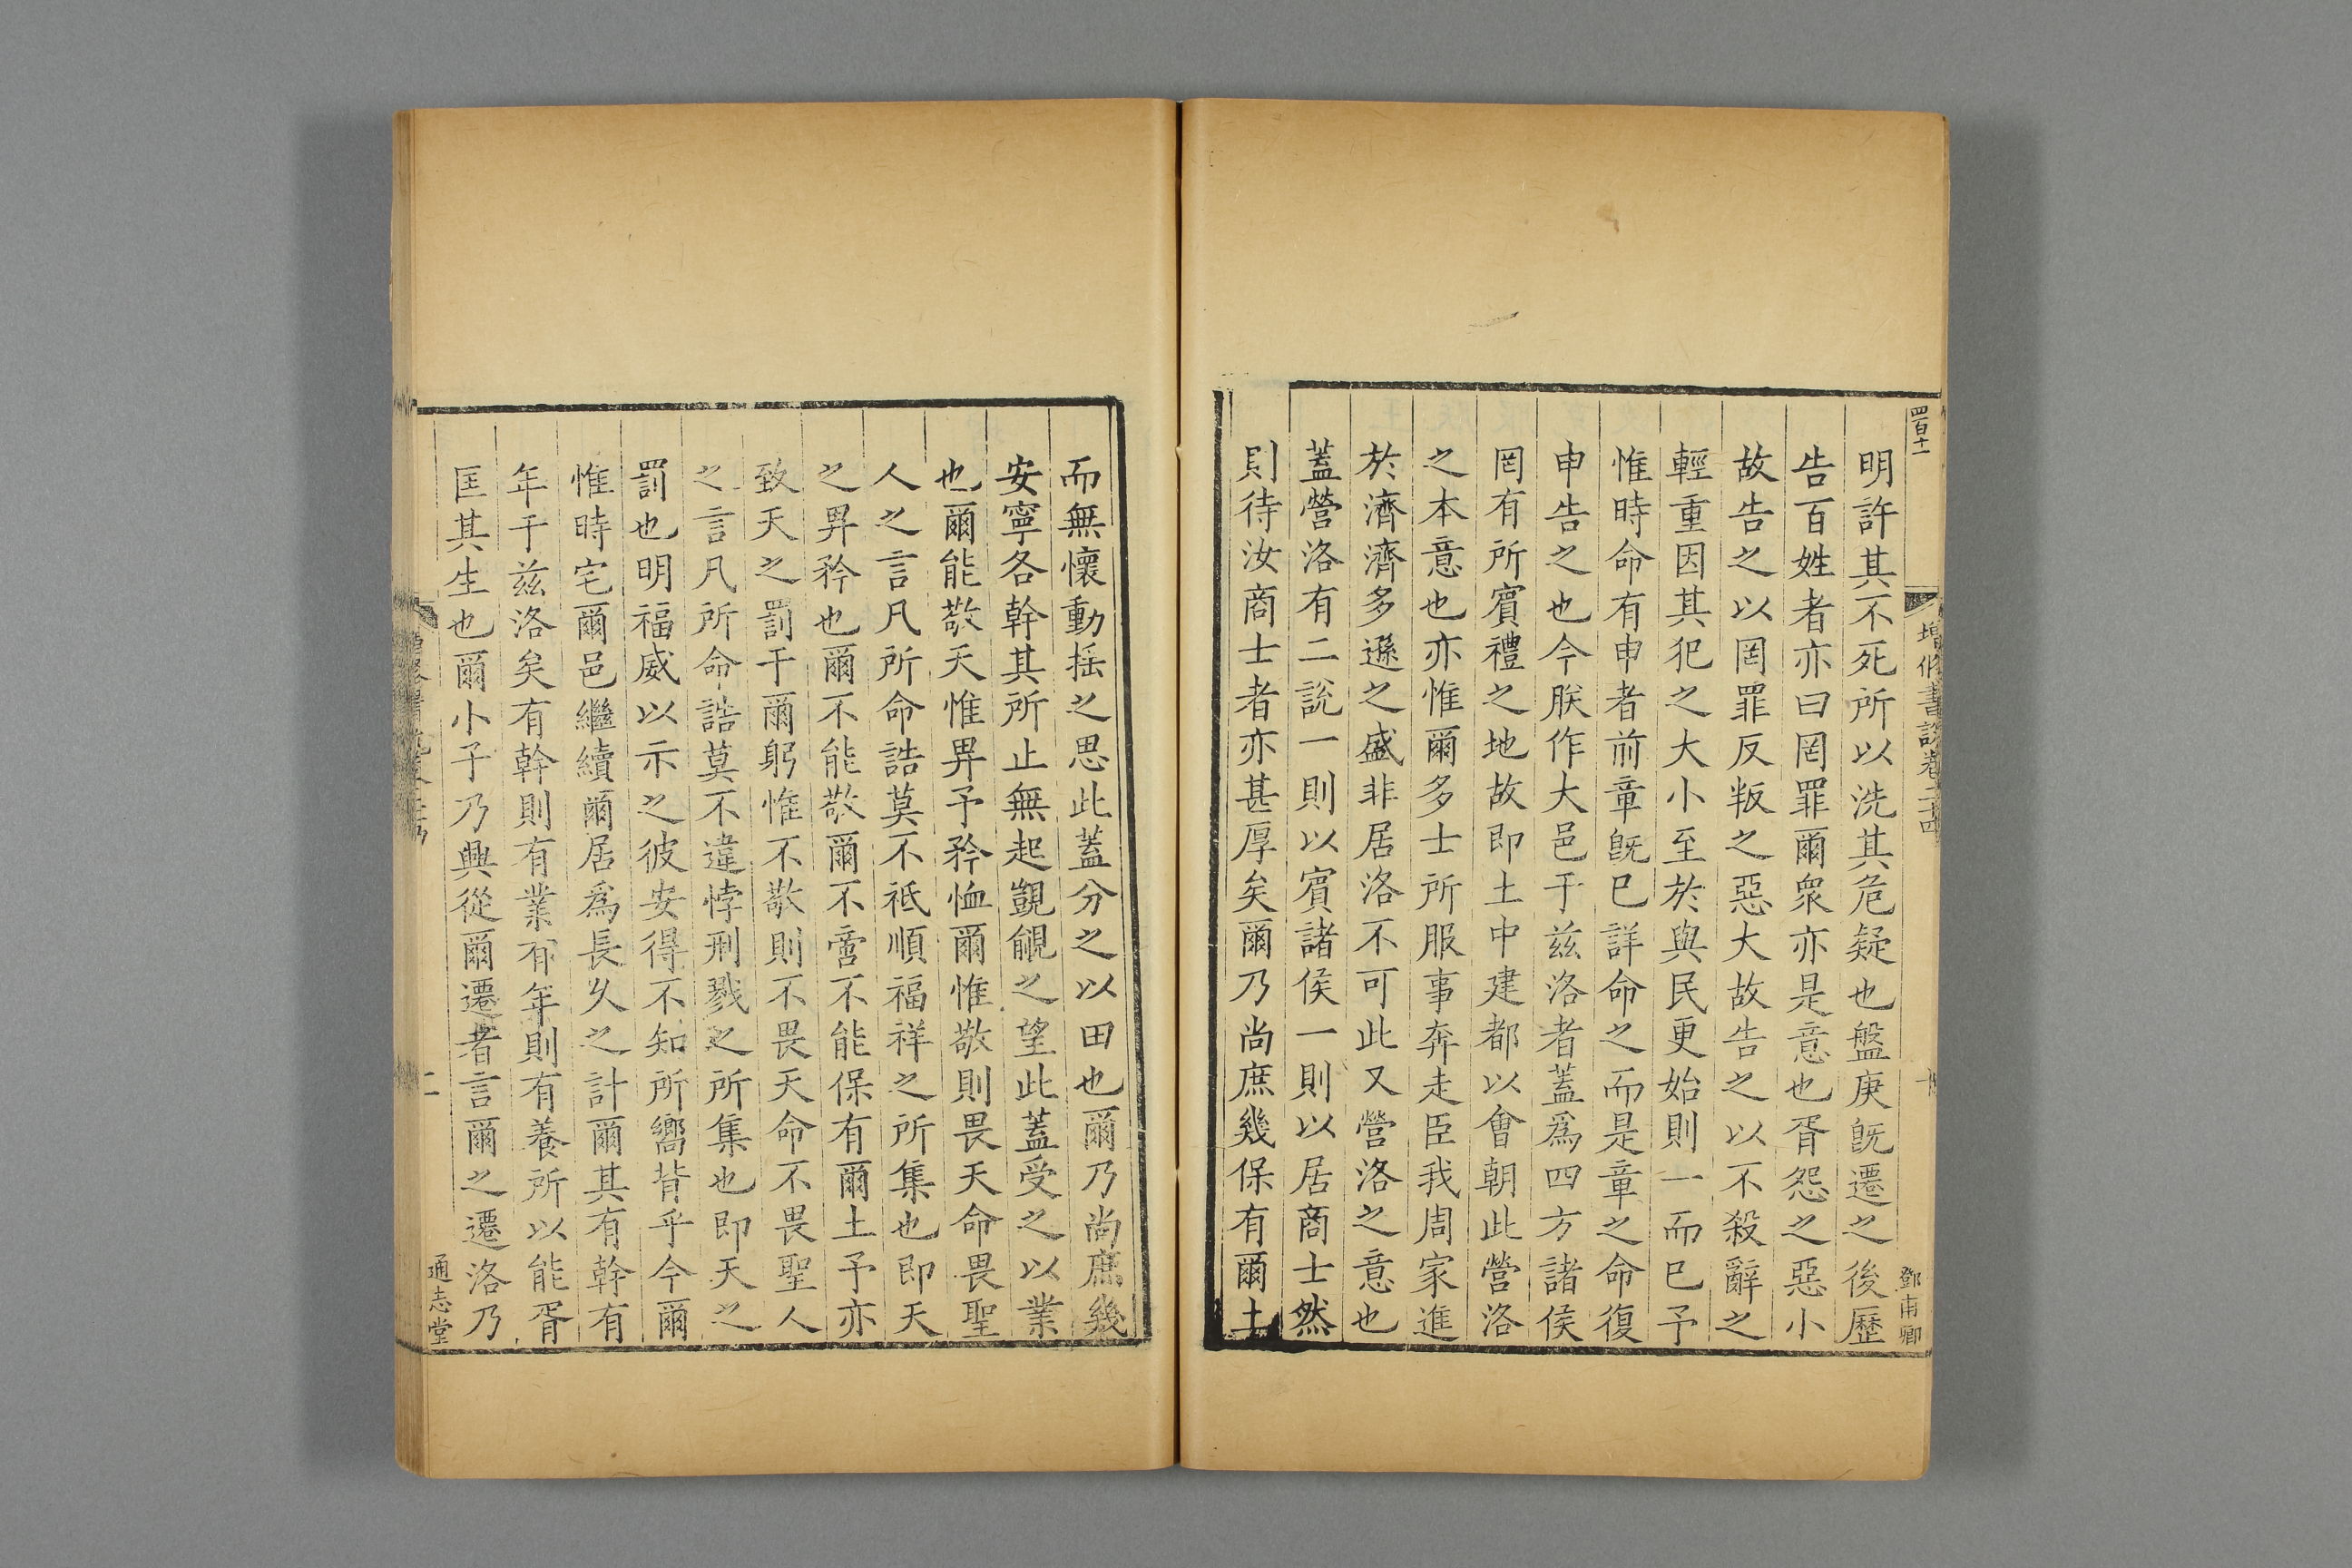 四百十一
增修書說卷二十四
鄧甫卿
明許其不死所以洗其危疑也盤庚旣遷之後歷
告百姓者亦曰罔罪爾衆亦是意也胥怨之惡小
故告之以罔罪反叛之惡大故告之以不殺辭之
輕重因其犯之大小至於與民更始則一而已予
惟時命有申者前章旣已詳命之而是章之命復
申告之也今朕作大邑于兹洛者蓋爲四方諸侯
罔有所賓禮之地故即土中建都以會朝此營洛
之本意也亦惟爾多士所服事奔走臣我周家進
於濟濟多遜之盛非居洛不可此又營洛之意也
蓋營洛有二說一則以賓諸侯一則以居商士然
則待汝商士者亦甚厚矣爾乃尚庶幾保有爾土
而無懷動揺之思此蓋分之以田也爾乃尚庶幾
安寧各幹其所止無起覬覦之望此蓋受之以業
也爾能敬天惟畀予矜恤爾惟敬則畏天命畏聖
人之言凡所命誥莫不祗順福祥之所集也即天
之畀矜也爾不能敬爾不啻不能保有爾土予亦
致天之罰于爾躬惟不敬則不畏天命不畏聖人
之言凡所命誥莫不違悖刑戮之所集也即天之
罰也明福威以示之彼安得不知所嚮背乎今爾
惟時宅爾邑繼續爾居爲長久之計爾其有幹有
年于兹洛矣有幹則有業有年則有養所以能胥
匡其生也爾小子乃興從爾遷者言爾之遷洛乃
通志堂